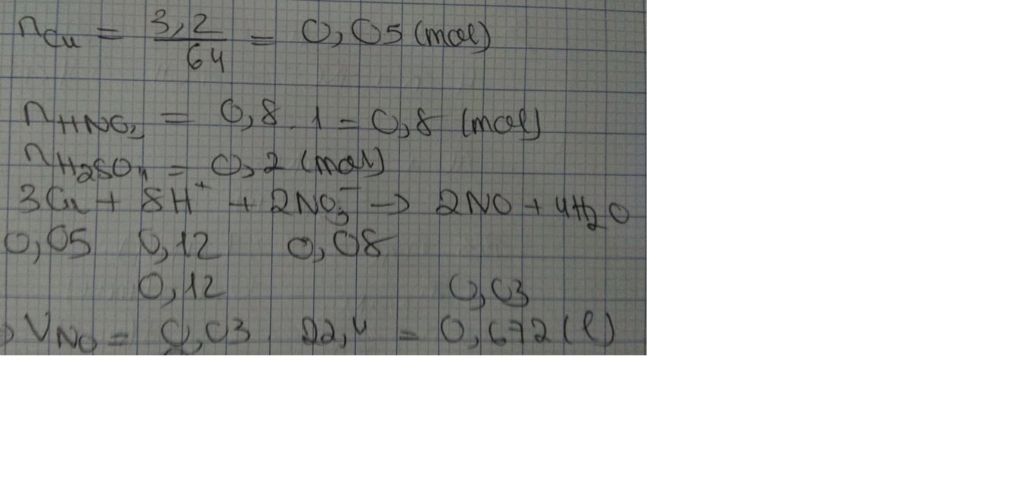 nCu = 3,2/64 = 0,05 (mol)
nHNO3 = 0,8 . 1 = 0,8 (mol)
nH2SO4 = 0,2 (mol)
3Cu + 8H⁺ + 2NO3⁻ → 2NO + 4H2O
0,05 0,12 0,08
0,12 0,03
VNO = 0,03 . 22,4 = 0,672 (l)